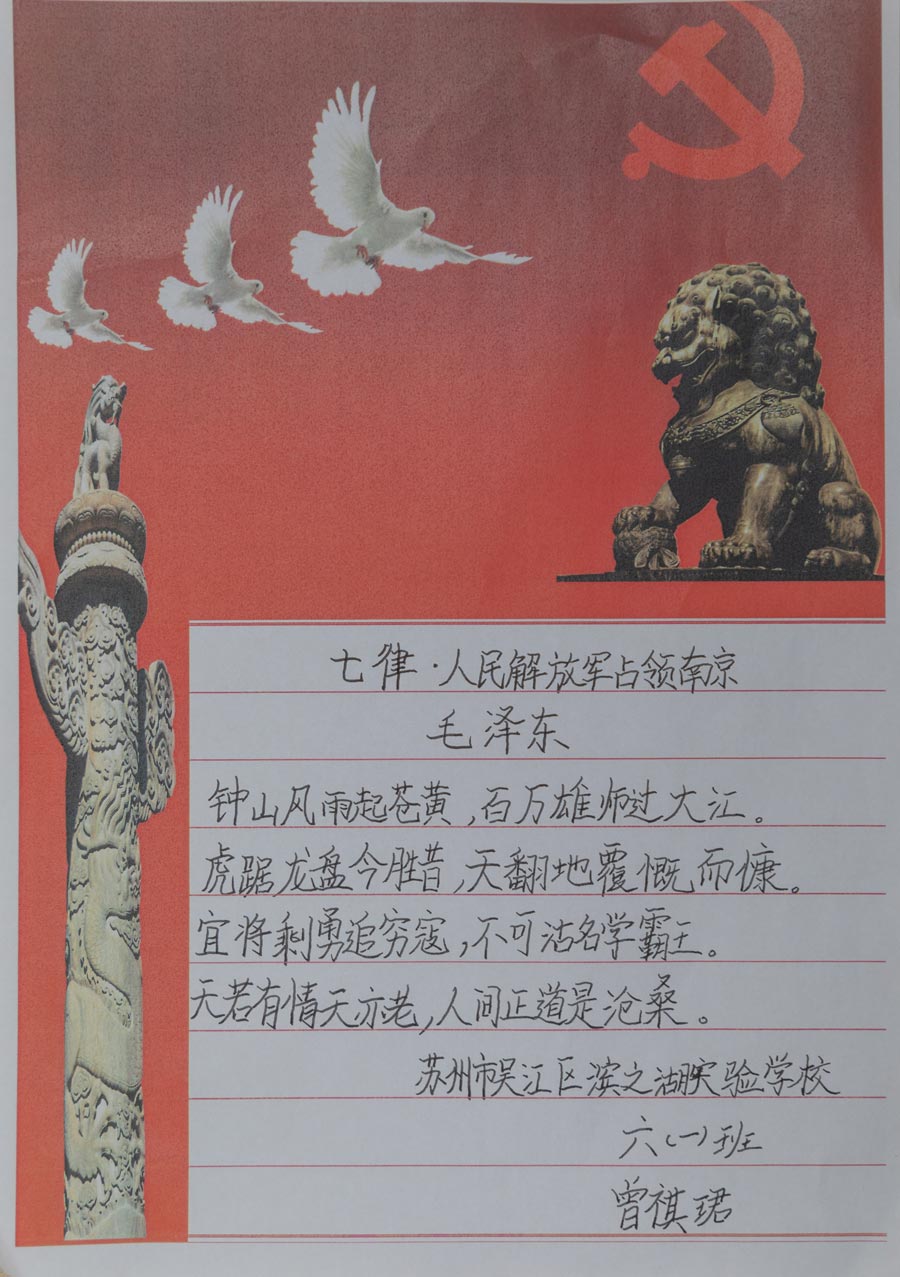 七律·人民解放军占领南京
毛泽东
钟山风雨起苍黄,百万雄师过大江。
虎踞龙盘今胜昔,天翻地覆慨而慷。
宜将剩勇追穷寇,不可沽名学霸王。
天若有情天亦老,人间正道是沧桑。
苏州市吴江区滨之湖实验学校
六(一)班
曾祺珺